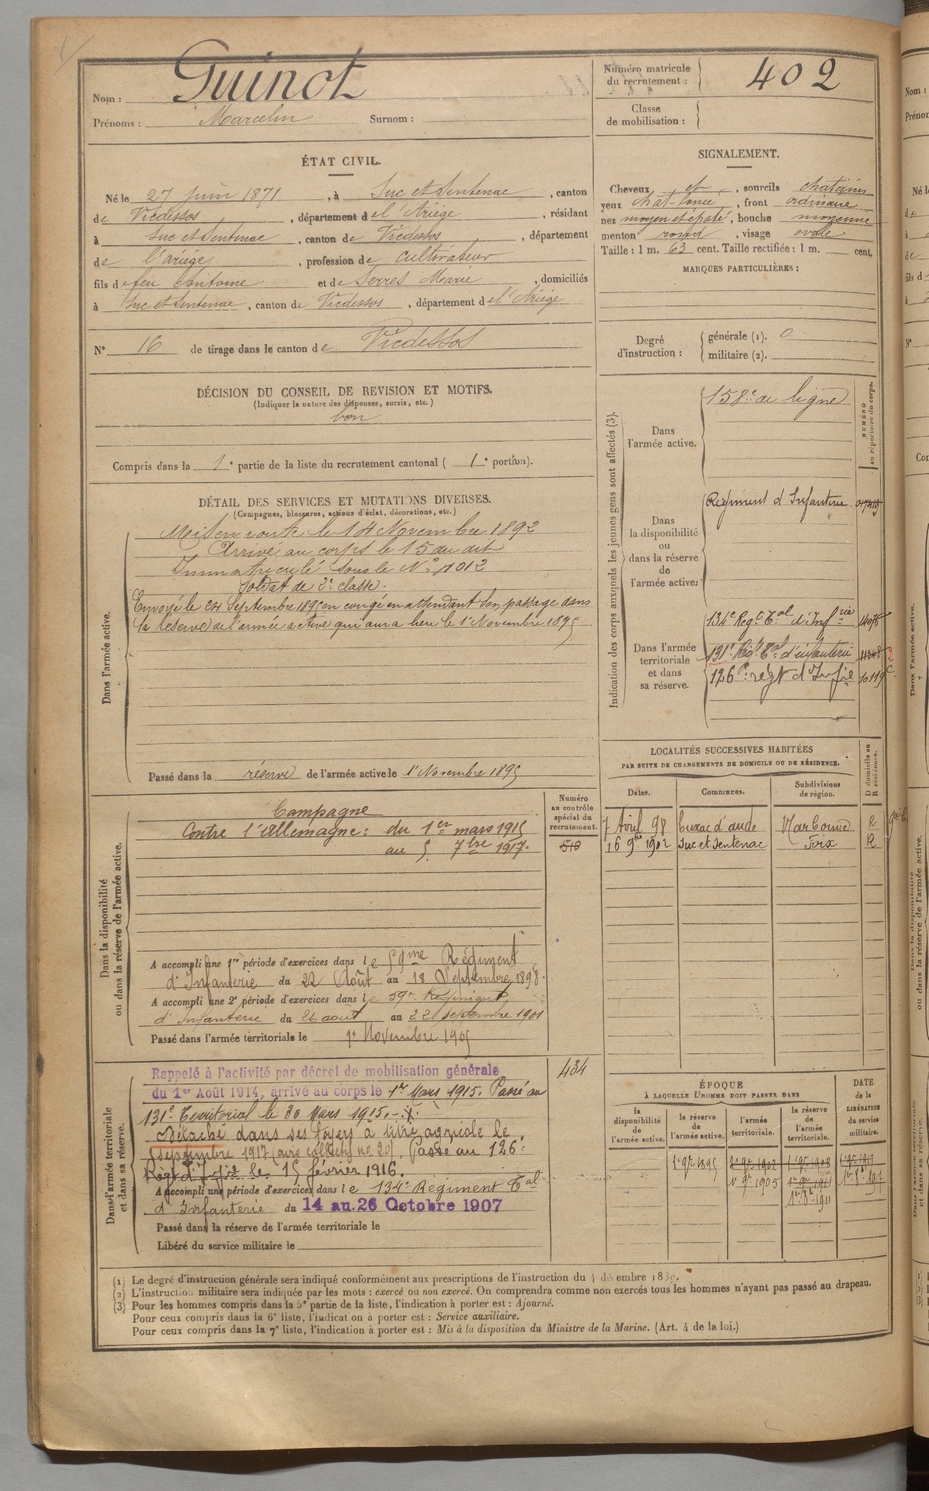 Nom : Guinot
Prénoms : Marcelin Surnom :
Numéro matricule du recrutement : 402
Classe de mobilisation :
ÉTAT CIVIL.
Né le 27 juin 1871, à Suc et Sentenac, canton
de Vicdessos, département de l'Ariège, résidant
à Suc et Sentenac, canton de Vicdessos, département
de l'ariège, profession de cultivateur
fils de feu Antoine et de Serres Marie, domiciliés
à Suc et Sentenac, canton de Vicdessos, département de l'Ariège
N° 16 de tirage dans le canton de Vicdessos
SIGNALEMENT.
Cheveux et, sourcils chatains
yeux chat. , front ordinaire
nez moyen et épaté, bouche moyenne
menton rond, visage ovale
Taille : 1 m. 63 cent. Taille rectifiée : 1 m. cent.
MARQUES PARTICULIÈRES :
Degré d'instruction : générale (1). 0
militaire (2).
DÉCISION DU CONSEIL DE REVISION ET MOTIFS.
(Indiquer la nature des dispenses, sursis, etc.)
bon
Compris dans la 1e partie de la liste du recrutement cantonal ( 1e portion).
DÉTAIL DES SERVICES ET MUTATIONS DIVERSES.
(Campagnes, blessures, actions d'éclat, décorations, etc.)
Dans l'armée active.
Mis en route le 14 Novembre 1892
Arrivé au corps le 15 du dit
Immatriculé sous le N° 1012
Soldat de 2e classe.
Envoyé le 24 Septembre 1895 en congé en attendant son passage dans
la réserve de l'armée active qui aura lieu le 1er Novembre 1895
Passé dans la réserve de l'armée active le 1er Novembre 1895
Indication des corps auxquels les jeunes gens sont affectés (3).
NUMÉRO au répertoire du corps.
Dans l'armée active.
158e de ligne
Dans la disponibilité ou dans la réserve de l'armée active.
Régiment d'Infanterie
Dans l'armée territoriale et dans sa réserve.
134e Regt Tal d'Infrie
131e Regt Tal d'infanterie
126e régt d'Infie 10119
LOCALITÉS SUCCESSIVES HABITÉES
PAR SUITE DE CHANGEMENTS DE DOMICILE OU DE RÉSIDENCE.
Dates. Communes. Subdivisions de région. D domicile ou R résidence.
7 Avril 98 Cuxac d'aude Narbonne R
16 9bre 1902 Suc et Sentenac Foix R
Dans la disponibilité ou dans la réserve de l'armée active.
Numéro au contrôle spécial du recrutement.
Campagne
Contre l'Allemagne : du 1er mars 1915
au 5. 7bre 1917.
A accompli une 1re période d'exercices dans le 59me Régiment
d'Infanterie du 22 Août au 18 Septembre 1898.
A accompli une 2e période d'exercices dans le 59e Régiment
d'Infanterie du 26 aout au 22 septembre 1901
Passé dans l'armée territoriale le 1er Novembre 1905
Dans l'armée territoriale et dans sa réserve.
434
Rappelé à l'activité par décret de mobilisation générale
du 1er Août 1914, arrivé au corps le 1er Mars 1915. Passé au
131e Territorial le 30 Mars 1915.
Détaché dans ses foyers à titre agricole le
5 septembre 1917 . Passé au 126e
Régt d'Infie le 15 février 1916.
A accompli une période d'exercices dans le 134e Régiment Tal
d'Infanterie du 14 au 26 Octobre 1907
Passé dans la réserve de l'armée territoriale le
Libéré du service militaire le
ÉPOQUE
A LAQUELLE L'HOMME DOIT PASSER DANS
la disponibilité de l'armée active. la réserve de l'armée active. l'armée territoriale. la réserve de l'armée territoriale. DATE de la LIBÉRATION du service militaire.
1er 9bre 1895 1er 9bre 1902 1er 9bre 1908
1er 9bre 1905 1er 9bre 1911
(1) Le degré d'instruction générale sera indiqué conformément aux prescriptions de l'instruction du
(2) L'instruction militaire sera indiquée par les mots : exercé ou non exercé. On comprendra comme non exercés tous les hommes n'ayant pas passé au drapeau.
(3) Pour les hommes compris dans la 5e partie de la liste, l'indication à porter est : Ajourné.
Pour ceux compris dans la 6e liste, l'indication à porter est : Service auxiliaire.
Pour ceux compris dans la 7e liste, l'indication à porter est : Mis à la disposition du Ministre de la Marine. (Art. 4 de la loi.)